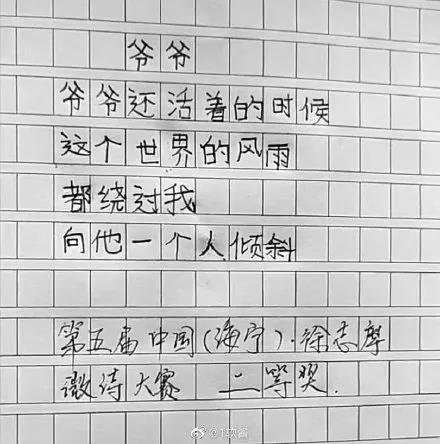 爷爷
爷爷还活着的时候
这个世界的风雨
都绕过我
向他一个人倾斜
第五届中国(海宁)·徐志摩
微诗大赛 二等奖.
@1软酱